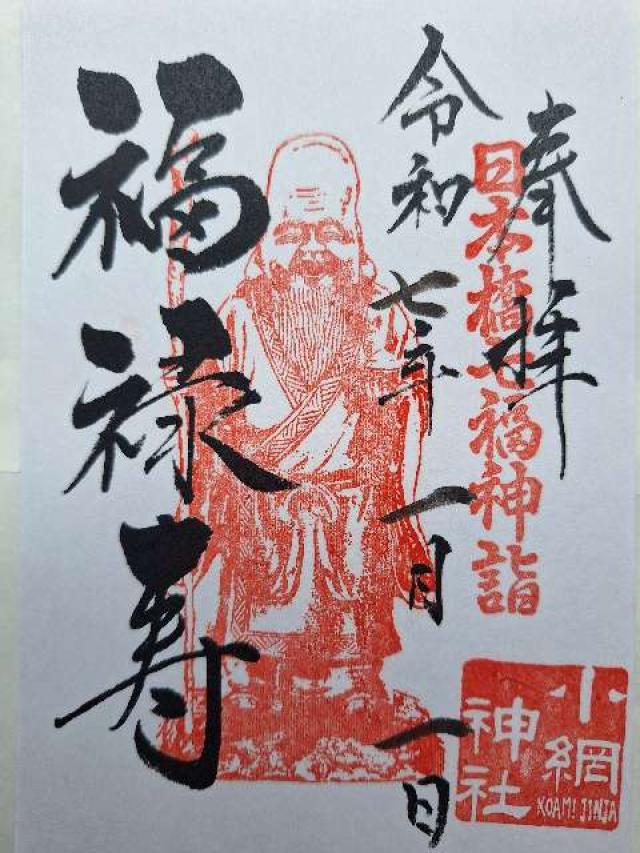 奉拝
日本橋七福神詣
令和七年一月一日
福禄寿
小網
神社
KOAMI JINJA